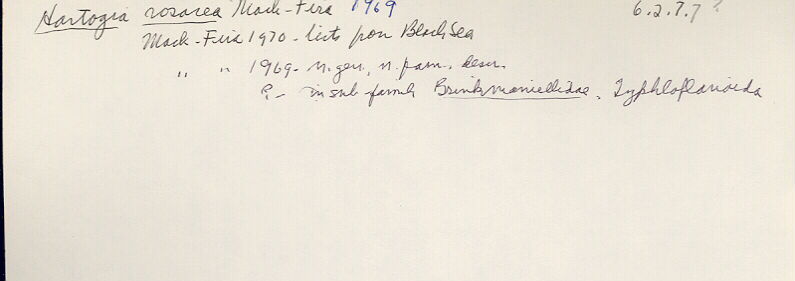 Hartogia rosacea Mack-Fira 1969 6.2.7.7 ?
Mack-Fira 1970 - lists from Black Sea
" " 1969 - n. gen., n. fam., descr.
in sub-family Brinkmaniellidae, Typhloplanoida